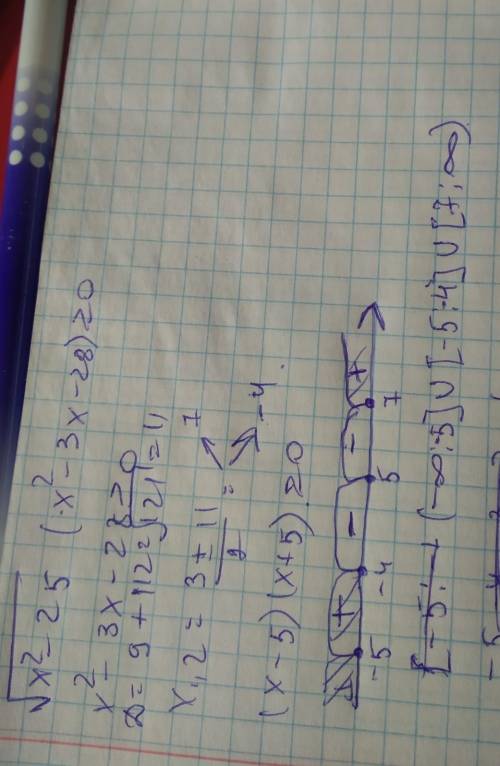 √x²-25 (x²-3x-28)≥0
x²-3x-28≥0
D=9+112=√121=11
x₁,₂ = 3±11/2 = 7 -4.
(x-5)(x+5)≥0
+ - - +
-5 -4 5 7
(-∞;-5]∪[-5;-4]∪[7;∞)